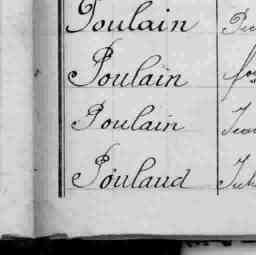 Poulain
Poulain
Poulain
Poulaud